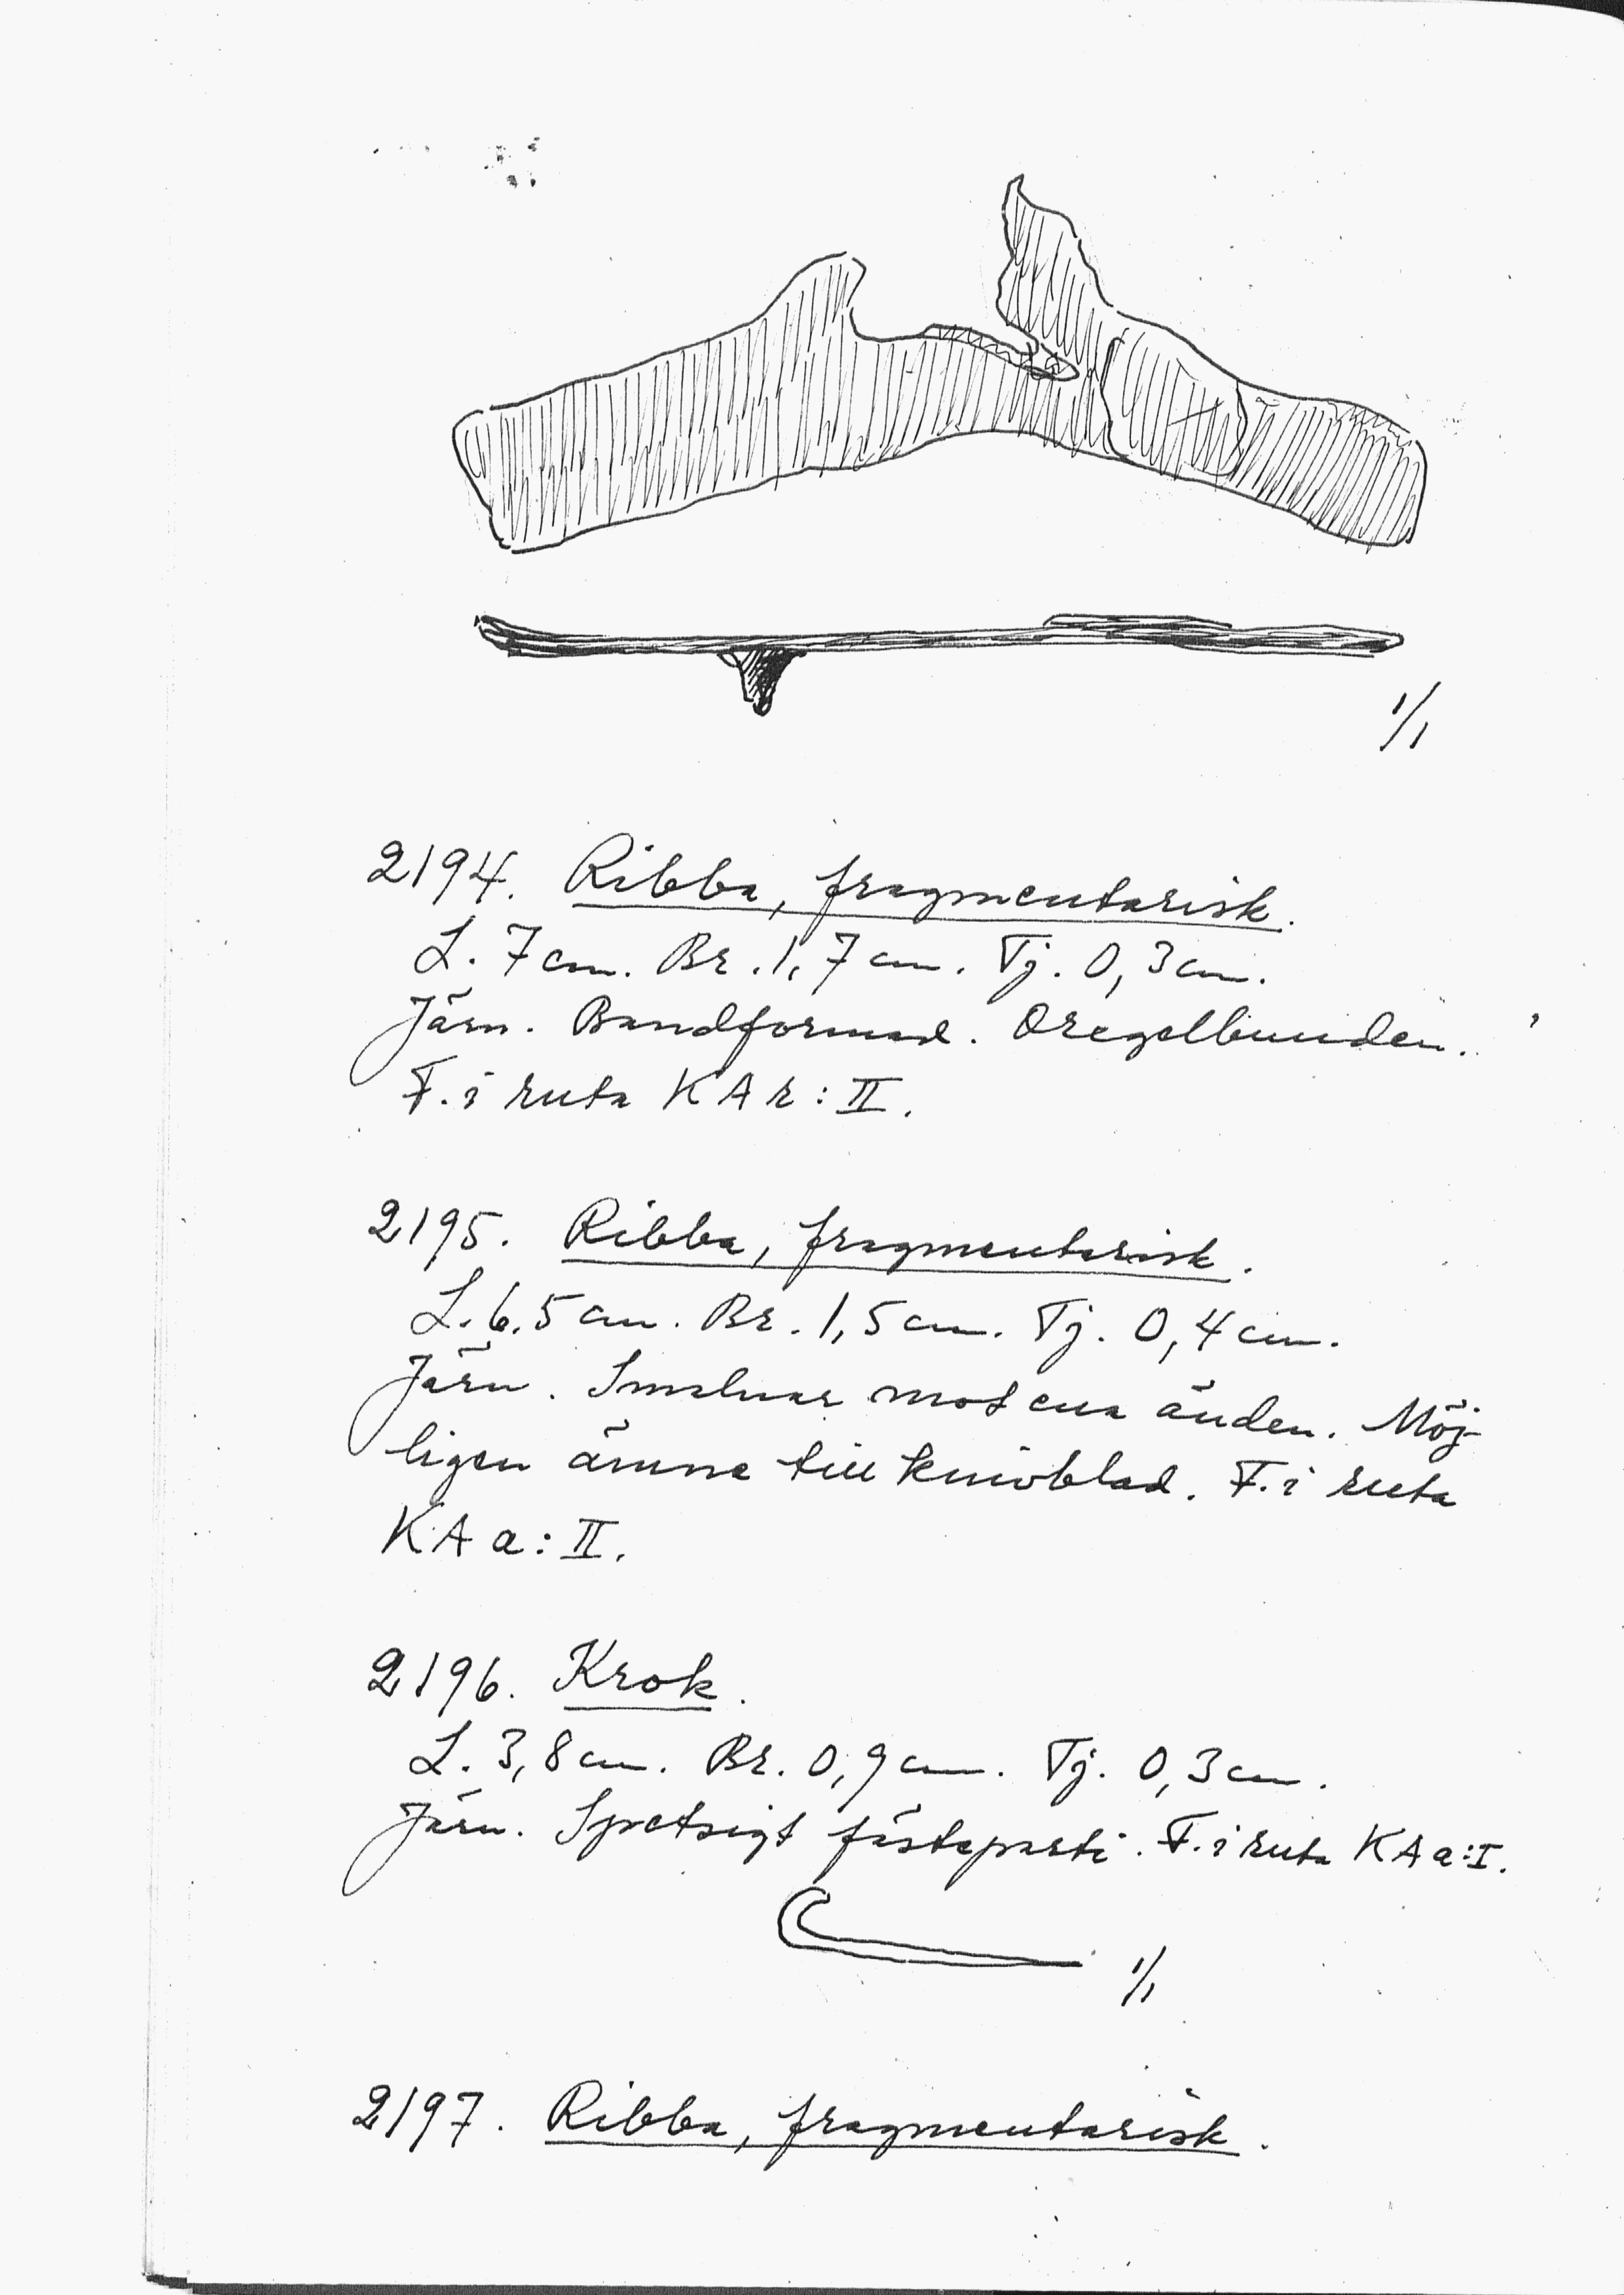 1/1
2194. Ribba, fragmentarisk.
L. 7 cm. Br. 1,7 cm. Tj. 0,3 cm.
Järn. Bandformad. Oregelbunden.
F. i ruta KAr:II.
2195. Ribba, fragmentarisk.
L. 6,5 cm. Br. 1,5 cm. Tj. 0,4 cm.
Järn. Smalnar mot ena änden. Möj-
ligen ämne till knivblad. F. i ruta
KAa:II.
2196. Krok.
L. 3,8 cm. Br. 0,9 cm. Tj. 0,3 cm.
Järn. Spetsigt fästeparti. F. i ruta KAa:I.
1/1
2197. Ribba, fragmentarisk.